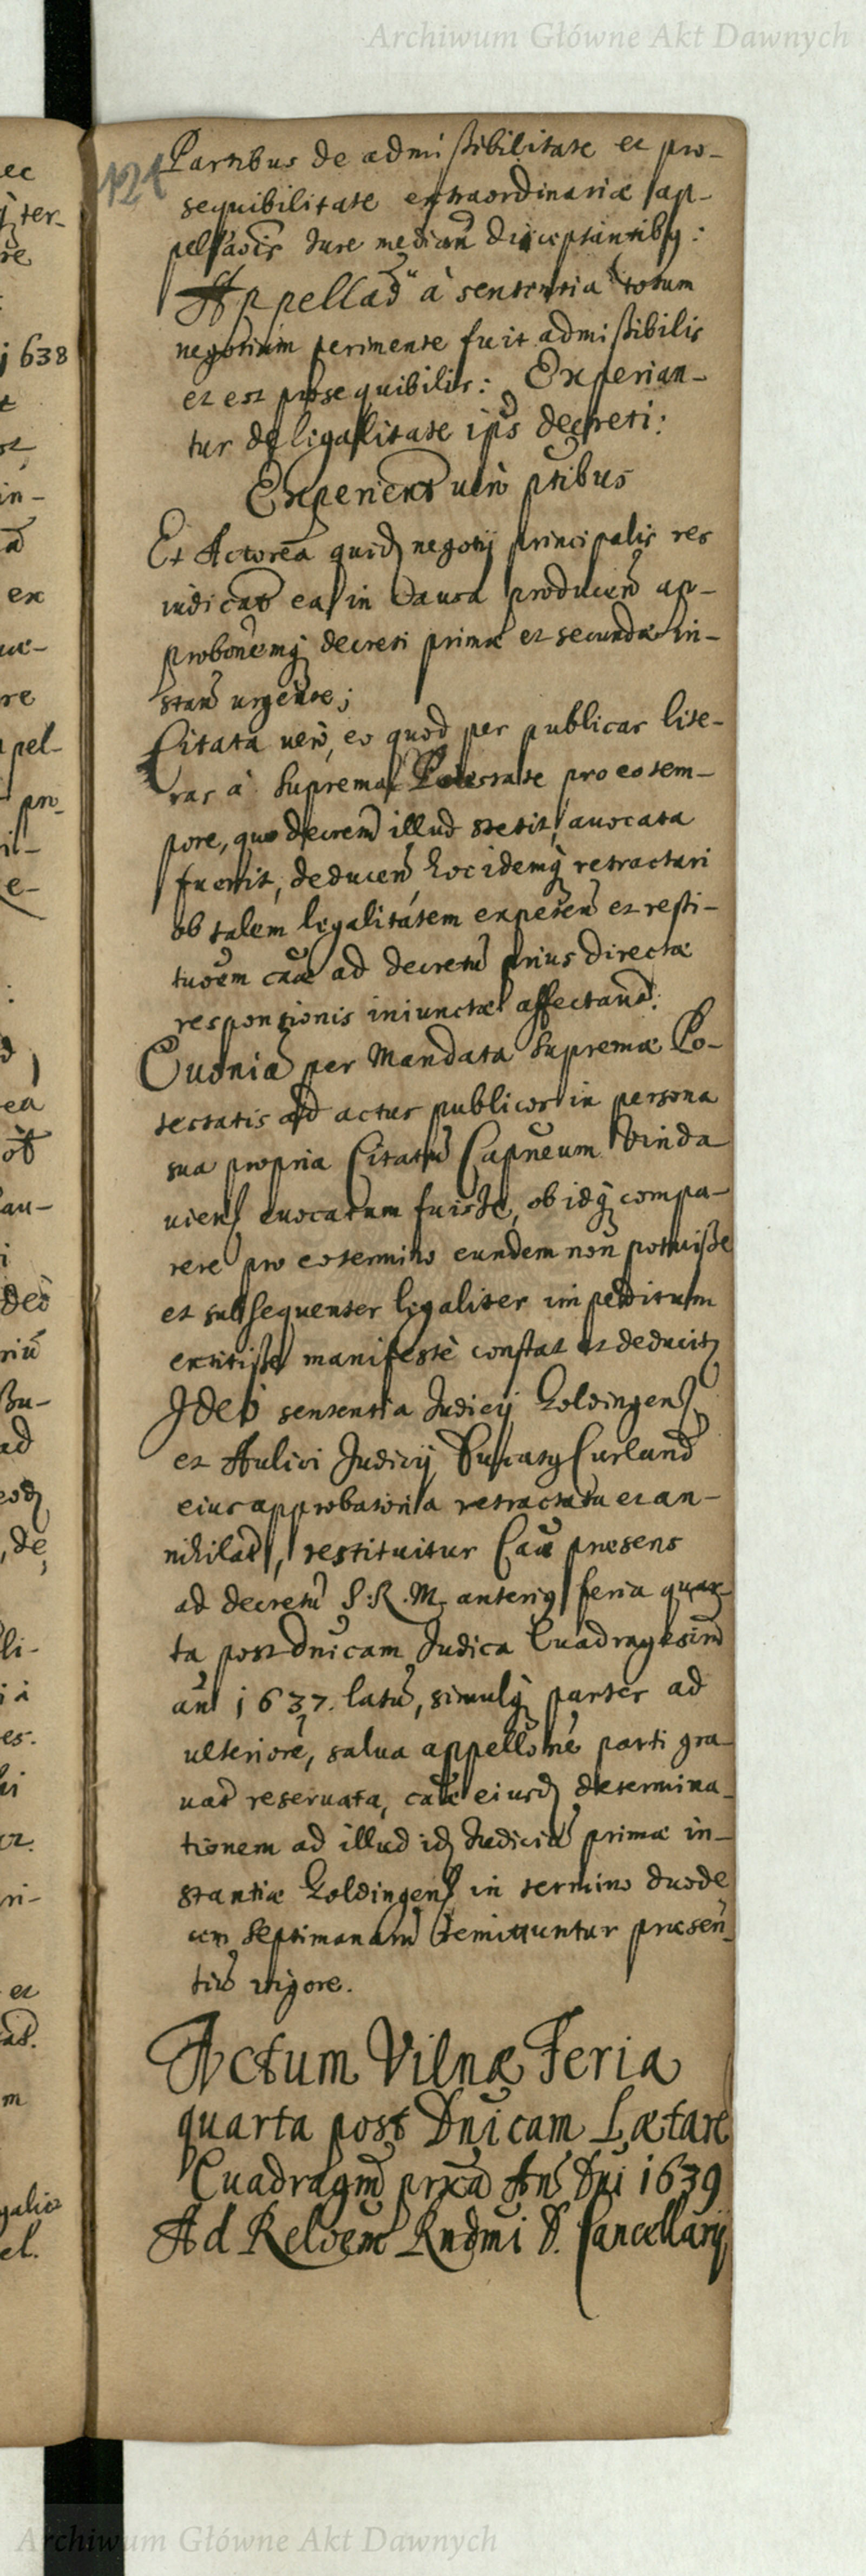 Archiwum Główne Akt Dawnych
124
Partibus de admissibilitate et pro-
sequibilitate extraordinariæ ap-
pellaois Iure mediañ disceptantibq:
Appellaõ à sententia totum
negotium perimente fuit admissibilis
et est prosequibilis: Experian-
tur de ligalitate ips decreti:
Experient vero ptibus
Et Actorea quid negotij principalis res
iudicat eas in Causa producen ap-
probonemq decreti primæ et secundæ in-
stan urgente;
Citata vero, eo quod per publicas lite-
ras à Suprema Potestate pro eo tem-
pore, quo decretu illud stetit, avocata
fuerit, deducen hoc idemq retractari
ob talem legalitatem expeten et resti-
tuoem cauæ ad decretu prius directæ
responsionis iniunctæ affectand:
Quonia per Mandata Supremæ Po-
testatis ad actus publicos in persona
sua propria Citatu Capneum Vinda
viens evocatum fuisse, ob idq compa-
rere pro eo termino eundem non potuisse
et subsequenter ligaliter impeditum
extitisse manifestè constat et deducit
Ideo sententia Iudicij Goldingens
et Aulici Iudicij Ducatq Curland
eius approbatoria retractata et an-
nihilat, restituitur Caã præsens
ad decretu S. R. M. anteriq feria quar-
ta post Dnicam Iudica Quadragesim
an 1637. latu, simulq partes ad
ulteriore, salva appellone parti gra-
vat reservata, cauæ eiusd determina-
tionem ad illud id Iudiciu primæ in-
stantiæ Goldingens in termino duode
cem Septimanaru remittuntur præsen-
tiu vigore.
Actum Vilnæ Feria
quarta post Dnicam Lætare
Quadragm prxa An Dni 1639
Ad Reloem Rndmi D. Cancellarij
Archiwum Główne Akt Dawnych